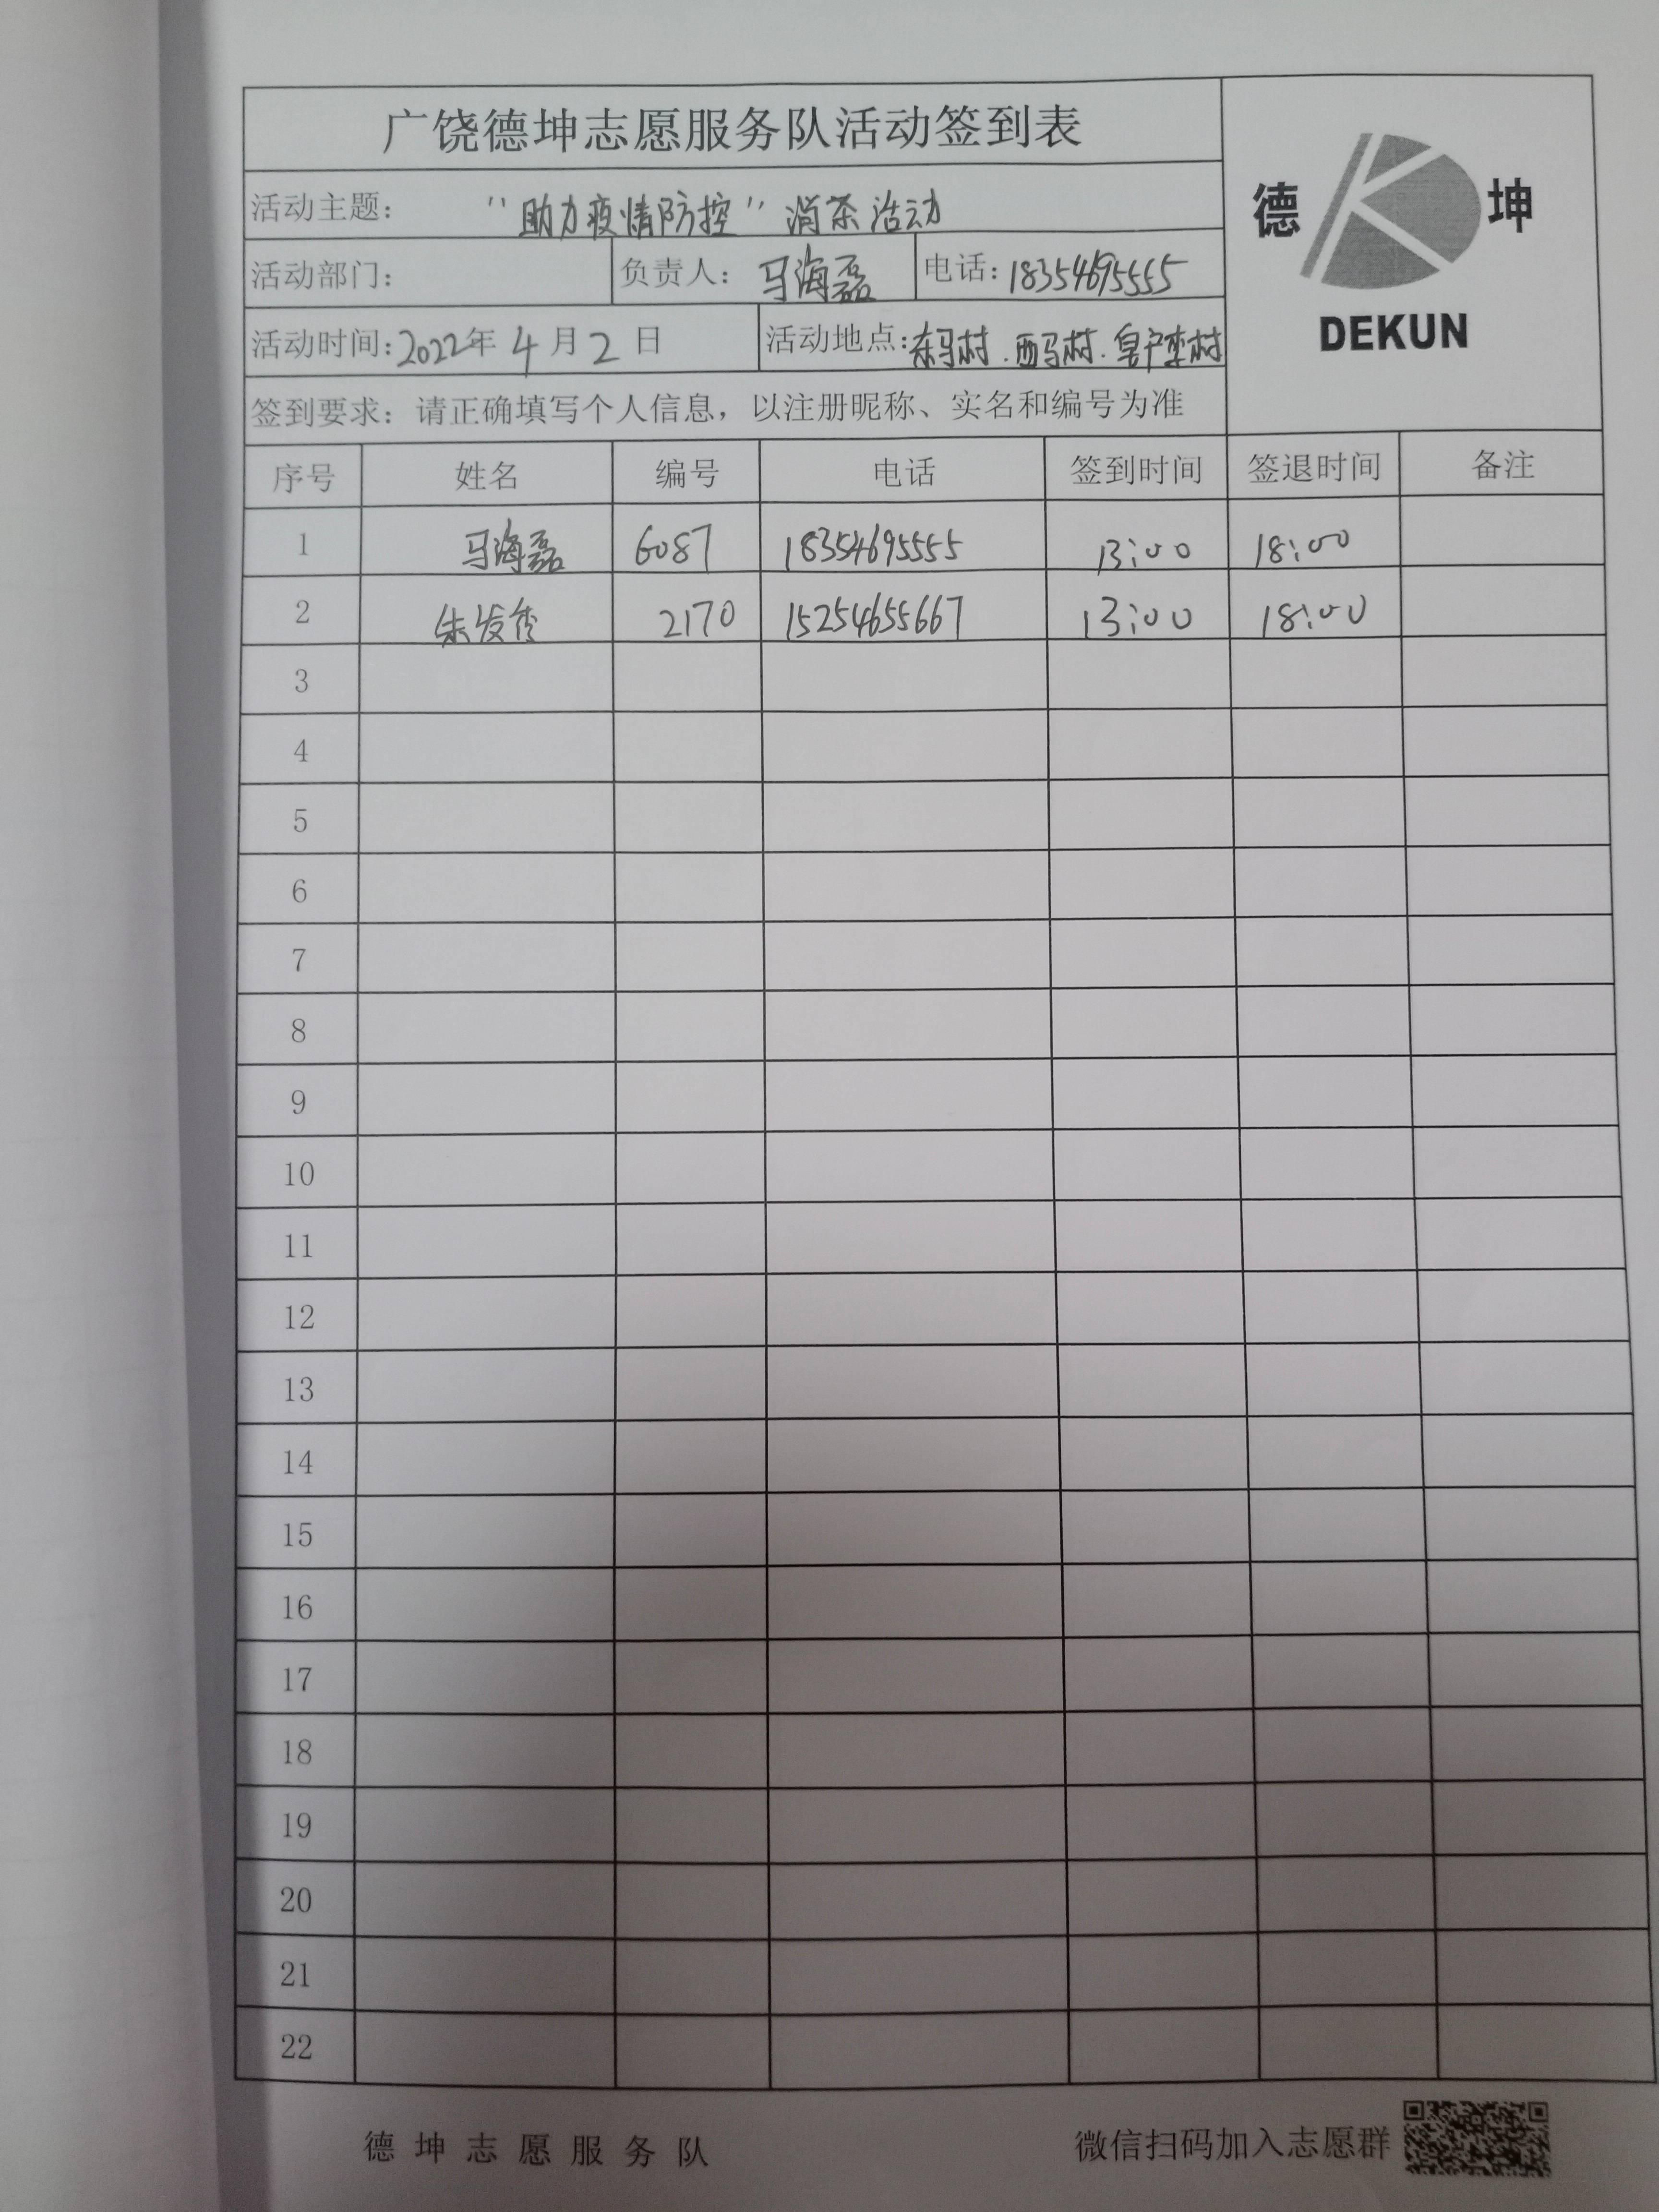 广饶德坤志愿服务队活动签到表
德 坤
DEKUN
活动主题： “助力疫情防控”消杀活动
活动部门： 负责人：马海磊 电话：18354695555
活动时间：2022年 4 月 2 日 活动地点：东马村.西马村.皂户李村
签到要求：请正确填写个人信息，以注册昵称、实名和编号为准
序号 姓名 编号 电话 签到时间 签退时间 备注
1 马海磊 6087 18354695555 13:00 18:00
2 朱发秀 2170 15254655667 13:00 18:00
3
4
5
6
7
8
9
10
11
12
13
14
15
16
17
18
19
20
21
22
德坤志愿服务队 微信扫码加入志愿群